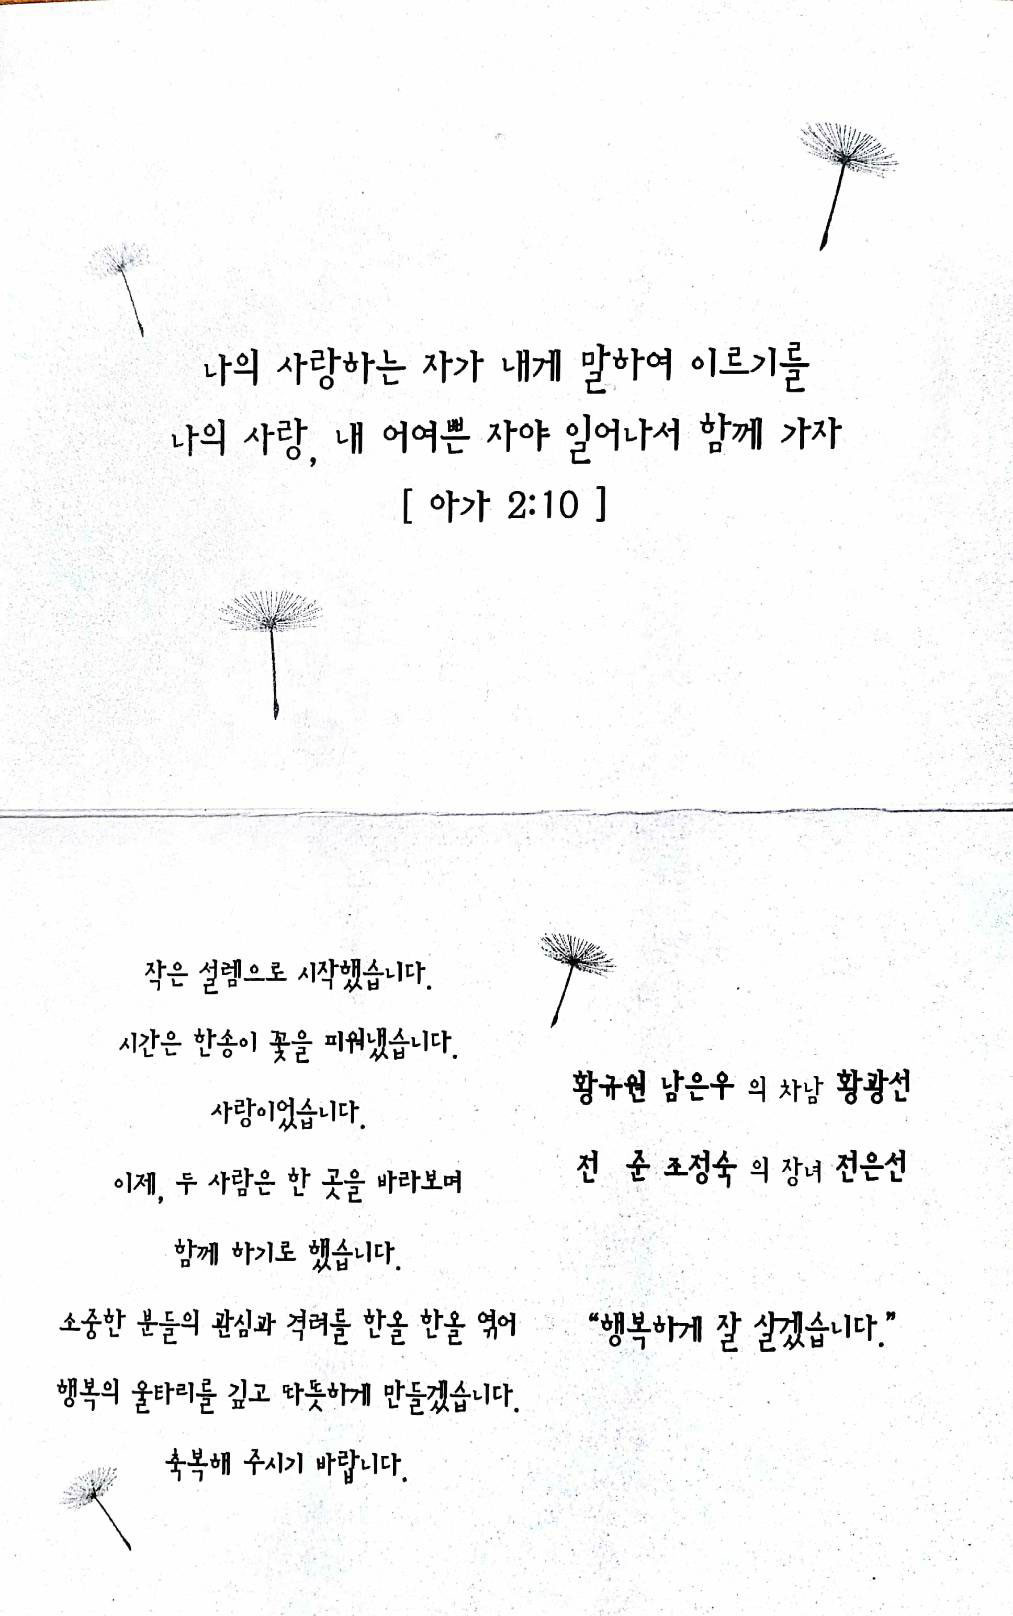 나의 사랑하는 자가 내게 말하여 이르기를
나의 사랑, 내 어여쁜 자야 일어나서 함께 가자
[ 아가 2:10 ]
작은 설렘으로 시작했습니다.
시간은 한송이 꽃을 피워냈습니다.
사랑이었습니다.
이제, 두 사람은 한 곳을 바라보며
함께 하기로 했습니다.
소중한 분들의 관심과 격려를 한올 한올 엮어
행복의 울타리를 깊고 따뜻하게 만들겠습니다.
축복해 주시기 바랍니다.
황규원 남은우 의 차남 황광선
전 준 조정숙 의 장녀 전은선
“행복하게 잘 살겠습니다.”